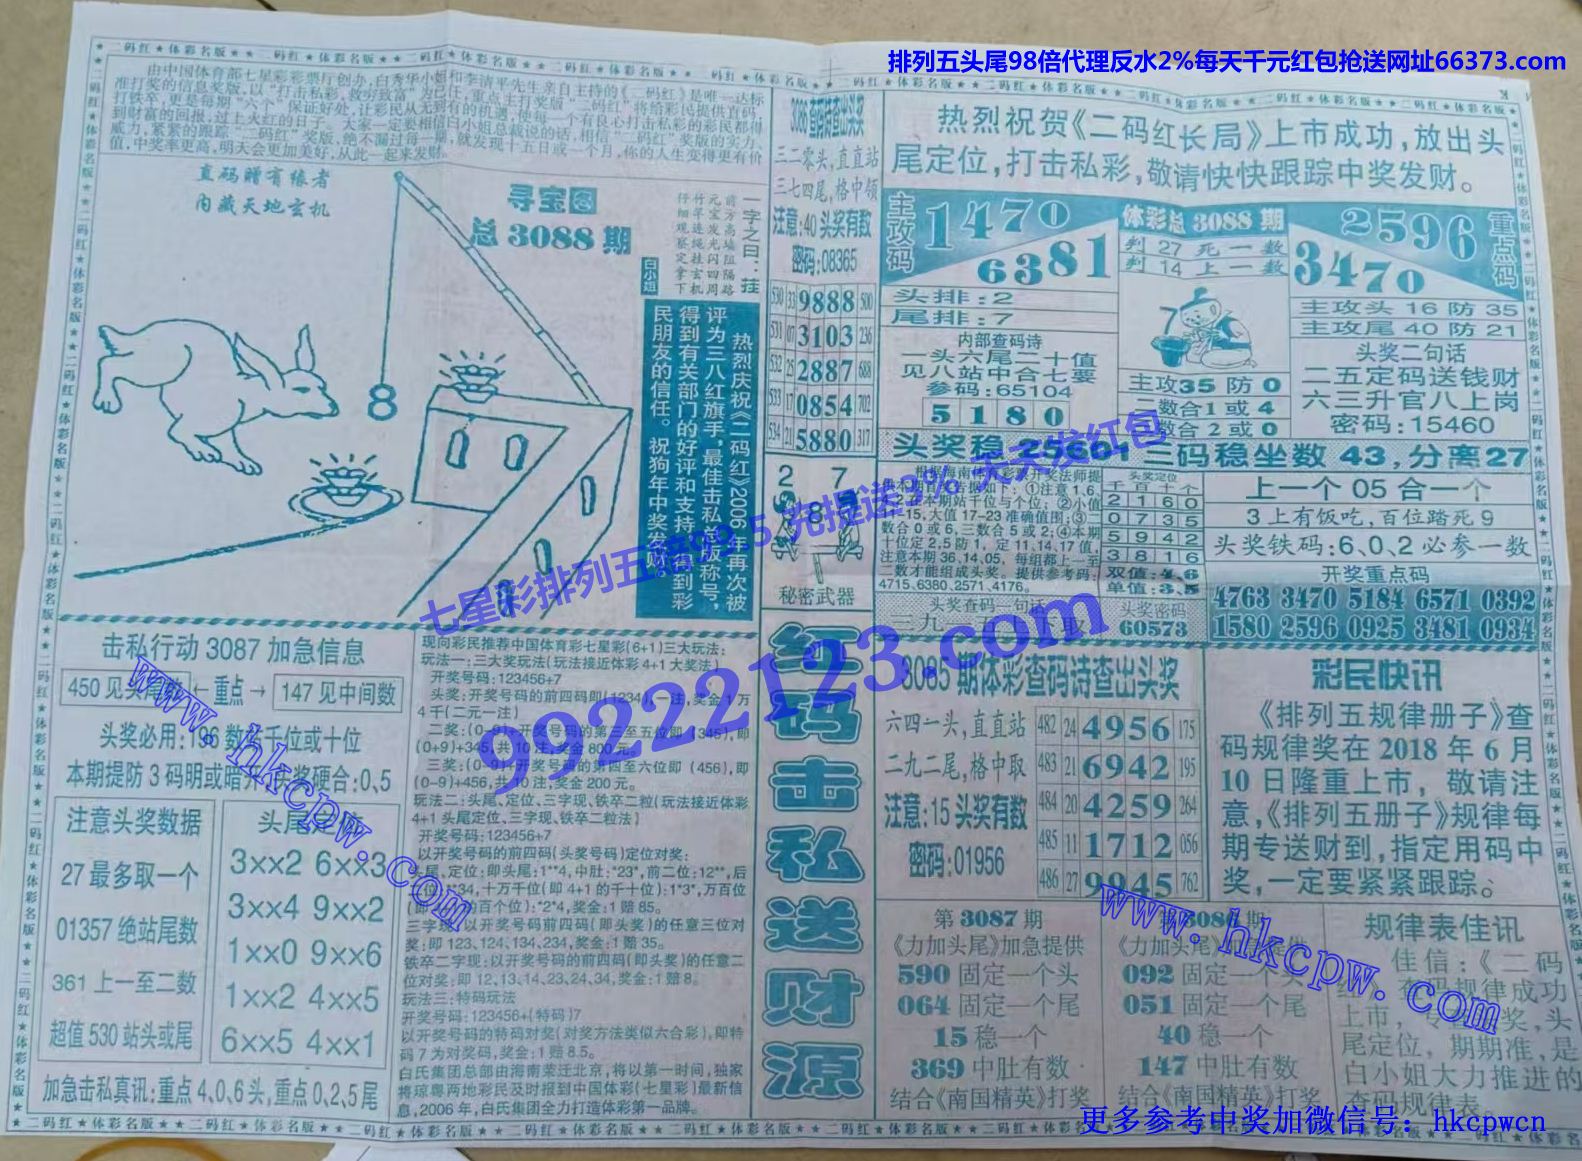 排列五头尾98倍代理反水2%每天千元红包抢送网址66373.com
由中国体育部七星彩彩票厅创办,白秀华小姐和李清平先生亲自主持的《二码红》是唯一达标
准打奖的优秀奖版,以“打击私彩,救穷致富”为己任,重点主打奖版“二码红”将给彩民提供直码,
直码赠有缘者
内藏天地玄机
寻宝图
总 3088 期
一字之曰:挂
前方高墙阻隔路
元宝发光闪四周
竹竿连绳挂玄机
仔细观察定拿下
白小姐
8
热烈庆祝《二码红》2006年再次被
评为三八红旗手,最佳击私总版称号,
得到有关部门的好评和支持,得到彩
民朋友的信任。祝狗年中奖发财。
三二零头,直直站
三七四尾,格中领
注意:40头奖有数
密码:08365
530 33 9888 500
531 07 3103 236
532 25 2887 688
533 17 0854 702
534 21 5880 317
2 7
8
秘密武器
热烈祝贺《二码红长局》上市成功,放出头
尾定位,打击私彩,敬请快快跟踪中奖发财。
主攻码
1470
6381
体彩总 3088 期
判 27 死一数
判 14 上一数
2596
3470
重点码
头排:2
尾排:7
内部查码诗
一头六尾二十值
见八站中合七要
参码:65104
5 1 8 0
7
主攻35防0
二数合1或4
数合2或0
主攻头 16 防 35
主攻尾 40 防 21
头奖二句话
二五定码送钱财
六三升官八上岗
密码:15460
头奖稳 2560,二码稳坐数 43,分离27
十位定2,5防1,定11,14,17值,
注意本期36,14,05,每组都上一至
二数才能组成头奖。提供参考码:
4715,6380,2571,4176。
头奖定位
千百十个
2 1 6 0
0 7 3 5
5 9 4 2
3 8 1 6
双值:4.6
单值:3.5
头奖查码一句话
头奖密码
60573
上一个 05 合一个
3上有饭吃,百位踏死9
头奖铁码:6、0、2必参一数
开奖重点码
4763 3470 5184 6571 0392
1580 2596 0925 3481 0934
七星彩排列五赔99.5 充提送3% 天天发红包
99222123.com
击私行动 3087 加急信息
450见头尾 ← 重点 → 147见中间数
头奖必用:196数
千位或十位
本期提防3码明或暗
奖硬合:0,5
注意头奖数据
27最多取一个
01357绝站尾数
361上一至二数
超值530站头或尾
头尾
3××2 6××3
3××4 9××2
1××0 9××6
1××2 4××5
6××5 4××1
加急击私真讯:重点4、0、6头,重点0、2、5尾
现向彩民推荐中国体育彩七星彩(6+1)三大玩法:
玩法一:三大奖玩法(玩法接近体彩4+1大奖法)
开奖号码:123456+7
头奖:开奖号码的前四码即(1234),一注,奖金1万
4千(二元一注)
二奖:(0-9)+开奖号码的第三至五位即(345),即
(0+9)+345,共10注,奖金800元。
三奖:(0-9)+开奖号码的第四至六位即(456),即
(0-9)+456,共10注,奖金200元。
玩法二:头尾、定位、三字现、铁卒二粒(玩法接近体彩
4+1头尾定位、三字现、铁卒二粒法)
开奖号码:123456+7
以开奖号码的前四码(头奖号码)定位对奖:
头尾、定位:即头尾:1**4,中肚:*23*,前二位:12**,后
二位:**34,十万千位(即4+1的千十位):1*3*,万百位
的百个位):*2*4,奖金:1赔85。
三字现:以开奖号码前四码(即头奖)的任意三位对
奖:即123、124、134、234,奖金:1赔35。
铁卒二字现:以开奖号码的前四码(即头奖)的任意二
位对奖:即12、13、14、23、24、34,奖金:1赔8。
玩法三:特码玩法
开奖号码:123456+(特码)7
以开奖号码的特码对奖(对奖方法类似六合彩),即特
码7为对奖码,奖金:1赔8.5。
白氏集团总部由海南荣迁北京,将以第一时间,独家
将琼粤两地彩民及时报到中国体彩(七星彩)最新信
息,2006年,白氏集团全力打造体彩第一品牌。
红码击私送财源
3085期体彩查码诗查出头奖
六四一头,直直站
二九二尾,格中取
注意:15头奖有数
密码:01956
482 24 4956 175
483 21 6942 195
484 20 4259 264
485 11 1712 056
486 27 9945 762
彩民快讯
《排列五规律册子》查
码规律奖在 2018 年 6 月
10 日隆重上市, 敬请注
意,《排列五册子》规律每
期专送财到,指定用码中
奖,一定要紧紧跟踪。
第 3087 期
《力加头尾》加急提供
590 固定一个头
064 固定一个尾
15 稳一个
369 中肚有数
结合《南国精英》打奖
092 固定一个头
051 固定一个尾
40 稳一个
147 中肚有数
结合《南国精英》打奖
规律表佳讯
佳信:《二码
尾定位,期期准,是
白小姐大力推进的
查码规律表。
www.hkcpw.com
www.hkcpw.com
更多参考中奖加微信号:hkcpwcn